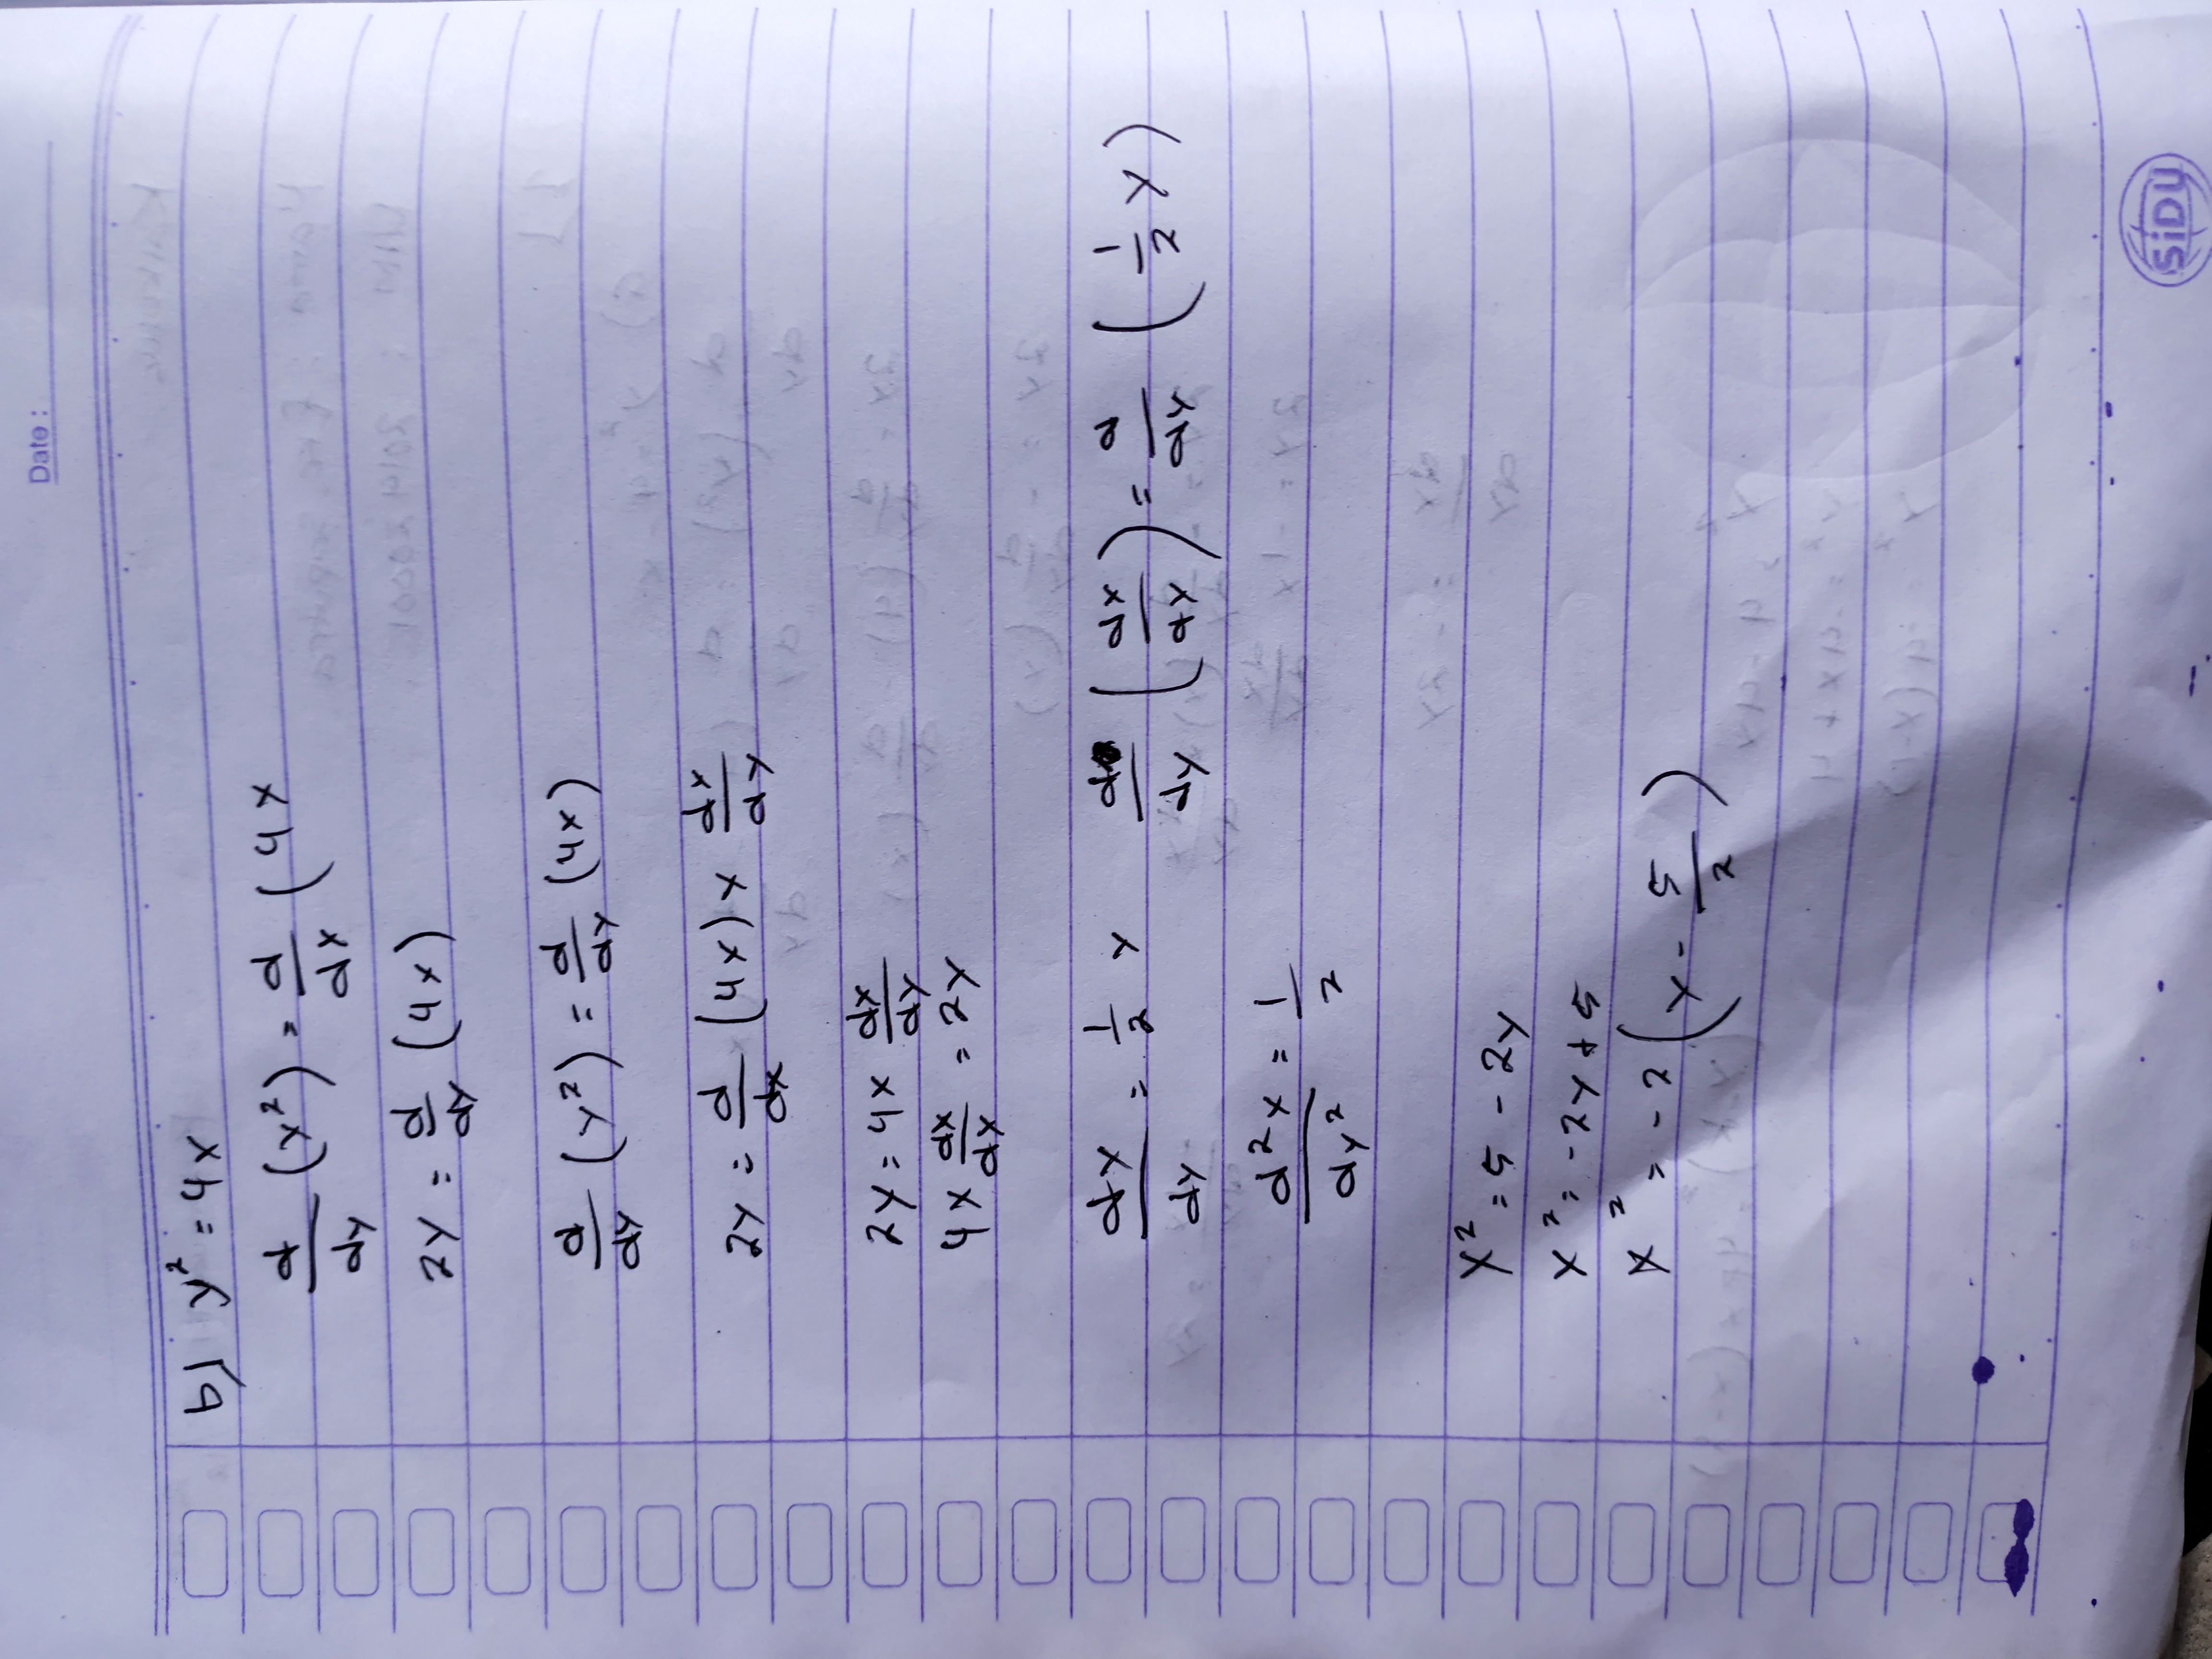 Date :
b) y² = 4x
d/dy (x²) = d/dx (4x
2y = d/dy (4x)
d/dy (y²) = d/dy (4x)
2y = d/dx (4x) x dx/dy
2y = 4x dx/dy
4x dx/dx = 2y
dx/dy = 1/2 y d/dy (dx/dy) = d/dy (1/2 y)
d²x/dy² = 1/2
x² = 5 - 2y
x² = -2y + 5
x² = -2 (y - 5/2)
SiDU